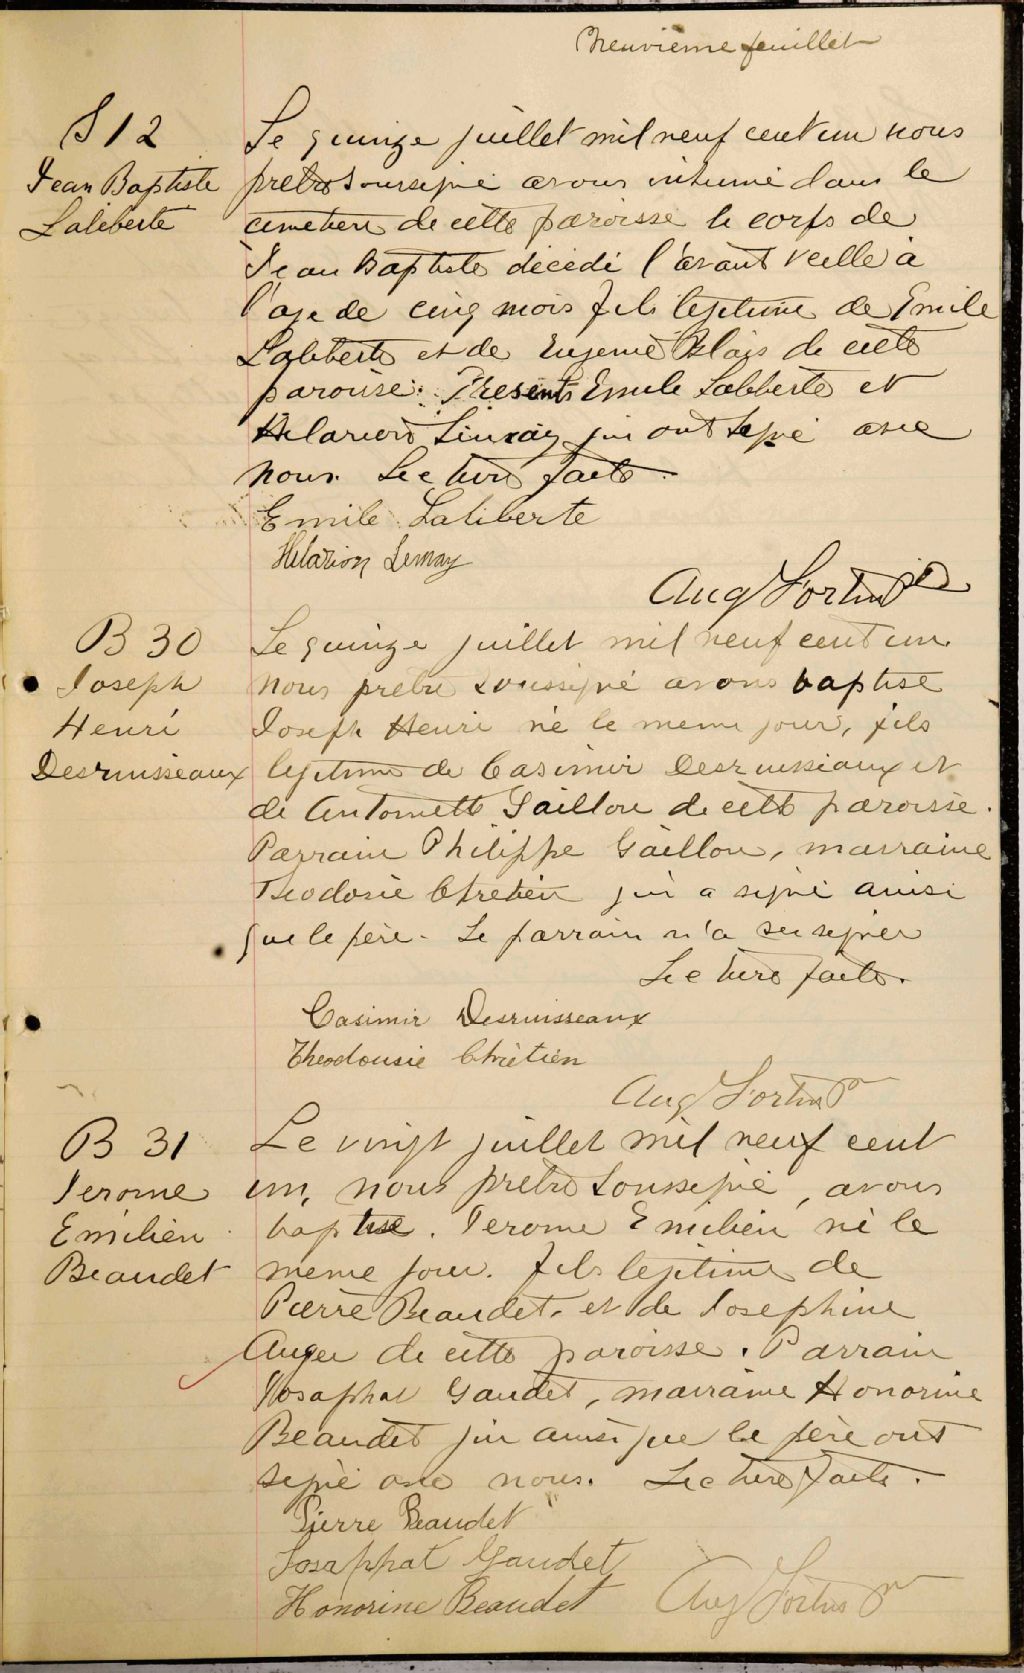 Neuvième feuillet
S 12
Jean Baptiste
Laliberté
Le quinze juillet mil neuf cent un nous
prêtre soussigné avons inhumé dans le
cimetière de cette paroisse le corps de
Jean Baptiste décédé l'avant veille à
l'age de cinq mois fils légitime de Emile
Laliberté et de Eugenie Blais de cette
paroisse. Présents Emile Laliberté et
Hilarion Lemay qui ont signé avec
nous. Lecture faite.
Emile Laliberte
Hilarion Lemay
Aug Fortin Ptre
B 30
Joseph
Henri
Desruisseaux
Le quinze juillet mil neuf cent un
nous prêtre soussigné avons baptisé
Joseph Henri né le meme jour, fils
legitime de Casimir Desruisseaux et
de Antoinette Gaillou de cette paroisse.
Parrain Philippe Gaillou, marraine
Théodosie Chretien qui a signé ainsi
que le père. Le parrain n'a su signer
Lecture faite.
Casimir Desruisseaux
Theodousie Chrétien
Aug Fortin Ptr
B 31
Jerome
Emilien
Beaudet
Le vingt juillet mil neuf cent
un, nous prêtre soussigné, avons
baptisé. Jerome Emilien né le
meme jour. fils légitime de
Pierre Beaudet. et de Josephine
Auger de cette paroisse. Parrain
Josaphat Gaudet, marraine Honorine
Beaudet qui ainsi que le père ont
signé avec nous. Lecture faite.
Pierre Beaudet
Josaphat Gaudet
Honorine Beaudet
Aug Fortin Ptr